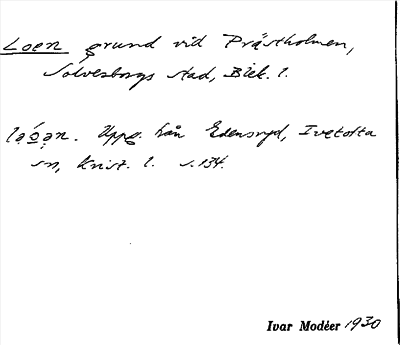 Loen grund vid Prästholmen,
Sölvesborgs stad, Blek. l.
Uppg. från Edensryd, Ivetofta
sn, Krist. l. s. 134.
Ivar Modéer 1930